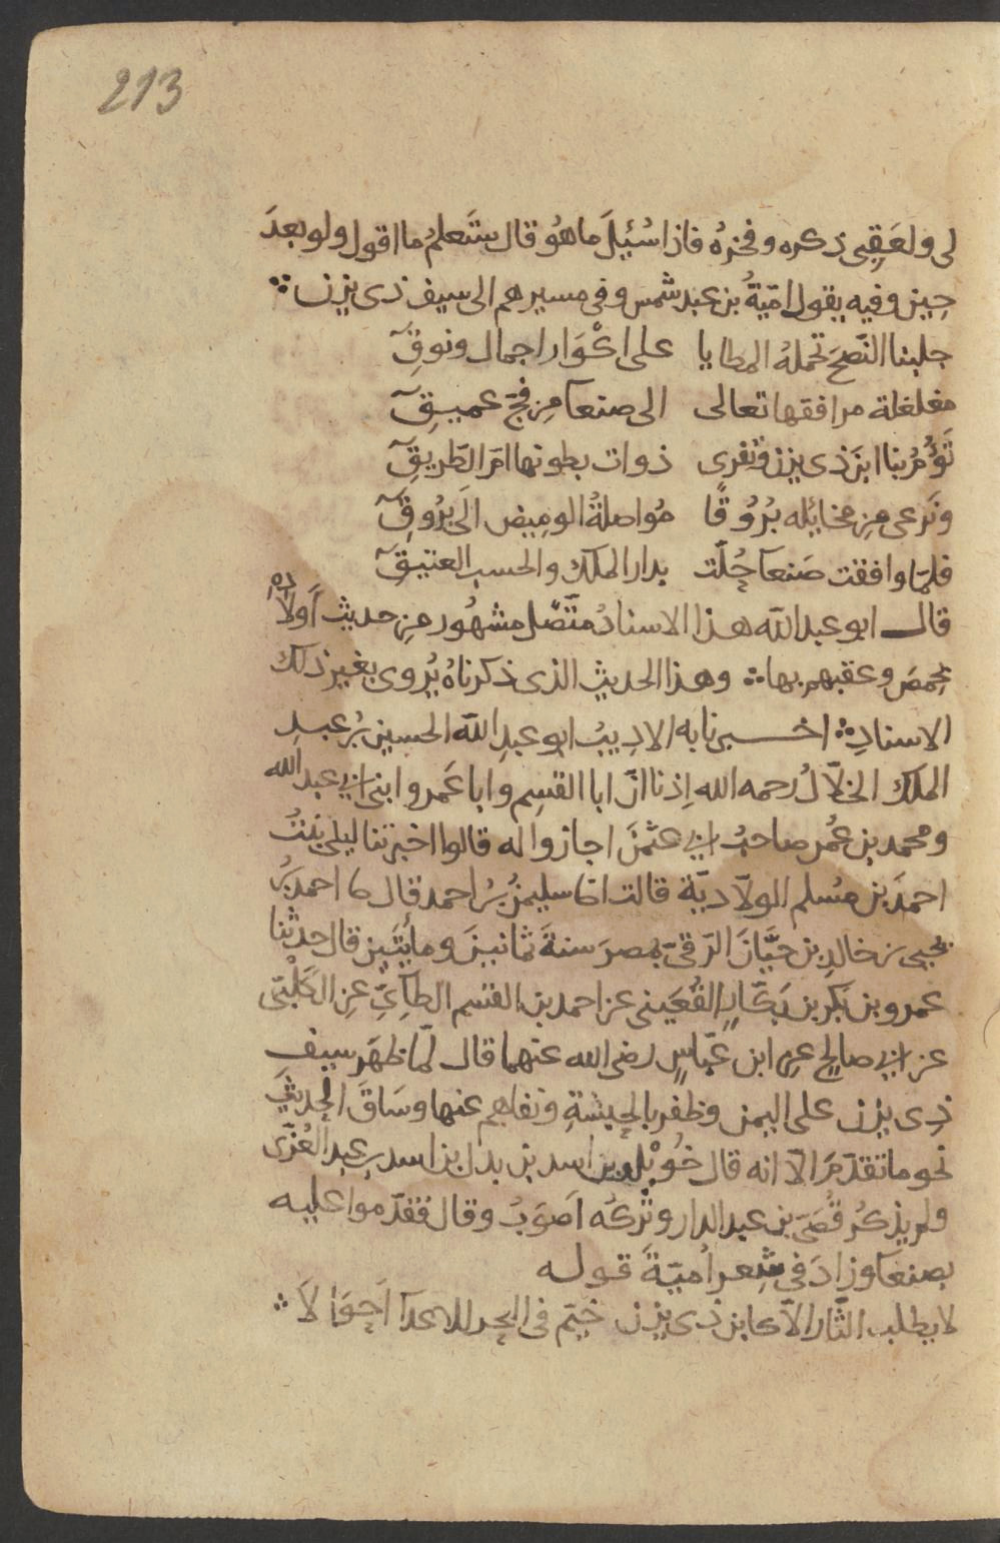 213
لى ولعَقِبى ذكره وفخرهُ فاذا سُئِيلَ ما هُوَ قال ستَعلمُ ما اقول ولو بعدَ
حِينٍ وفيه يقول امَيّةُ بن عبد شمس وفى مسيرهم الى سيف ذى يزن
جلبنا النّصحَ تحملهُ المطايا على اكْوَار اجمال ونوقِ
مغلغلة مرافقها تعالى الى صنعا مِن فجّ عميقِ
تَؤُمُّ بنا ابنَ ذى يزن وتفرى ذوات بطونها امّ الطّريقِ
ونَرعى مِن مخايله بُرُوقًا مُواصلةُ الومِيض الَى بُرُوقِ
فلمّا وافقت صَنعا حُلّت بدار الملك والحسب العتيقِ
قال ابو عبد الله هذا الاسنادُ متّصل مشهُور مِن حديث أَولاَدِهِ
بحمصَ وعقبهم بها وهذا الحديث الذى ذكرناهُ يُروى بغير ذلك
الاسنادِ اخبرنا به الاديبُ ابو عبدِ الله الحسين بنُ عبدِ
الملك الخلّالُ رحمه الله اِذنا انّ ابا القسِم وابا عَمرو ابنى ابى عبد الله
ومحمد بن عُمر صاحبُ ابى عثمنَ اجازوا له قالوا اخبرتنا ليلى بنتُ
احمدَ بن مُسلم الولّاديّة قالت انا سليمنُ بنُ احمد قال نا احمد بنُ
يحيى بن خالدِ بن حيَّانَ الرّقىّ بمصرَ سنةَ ثمانينَ ومأيتَين قال حدثنا
عمرو بن بَكر بن بَكّارٍ القُعَينى عن احمد بن القسم الطآىِّ عنِ الكَلْبىّ
عن ابى صالح عنِ ابن عبّاسٍ رضى الله عنهما قال لمّا ظهَر سيفِ
ذِى يزن على اليمن وظفر بالحبشةِ ونفاهم عنها وسَاقَ الحديثَ
نحو ما تقدّمَ الّا انه قال خُوَيلد بن اسد بن بدل بن اسد بن عبد العُزّى
ولم يذكُر قُصَىّ بن عبد الدار وتركُه اَصوَبُ وقال فقدّموا عليه
بصنعآ وزادَ فى شِعر اُميّةَ قوله
لا يطلب الثّار الاّ كابن ذى يزن خيّم فى البحر للاعدآ اَحوَالاَ